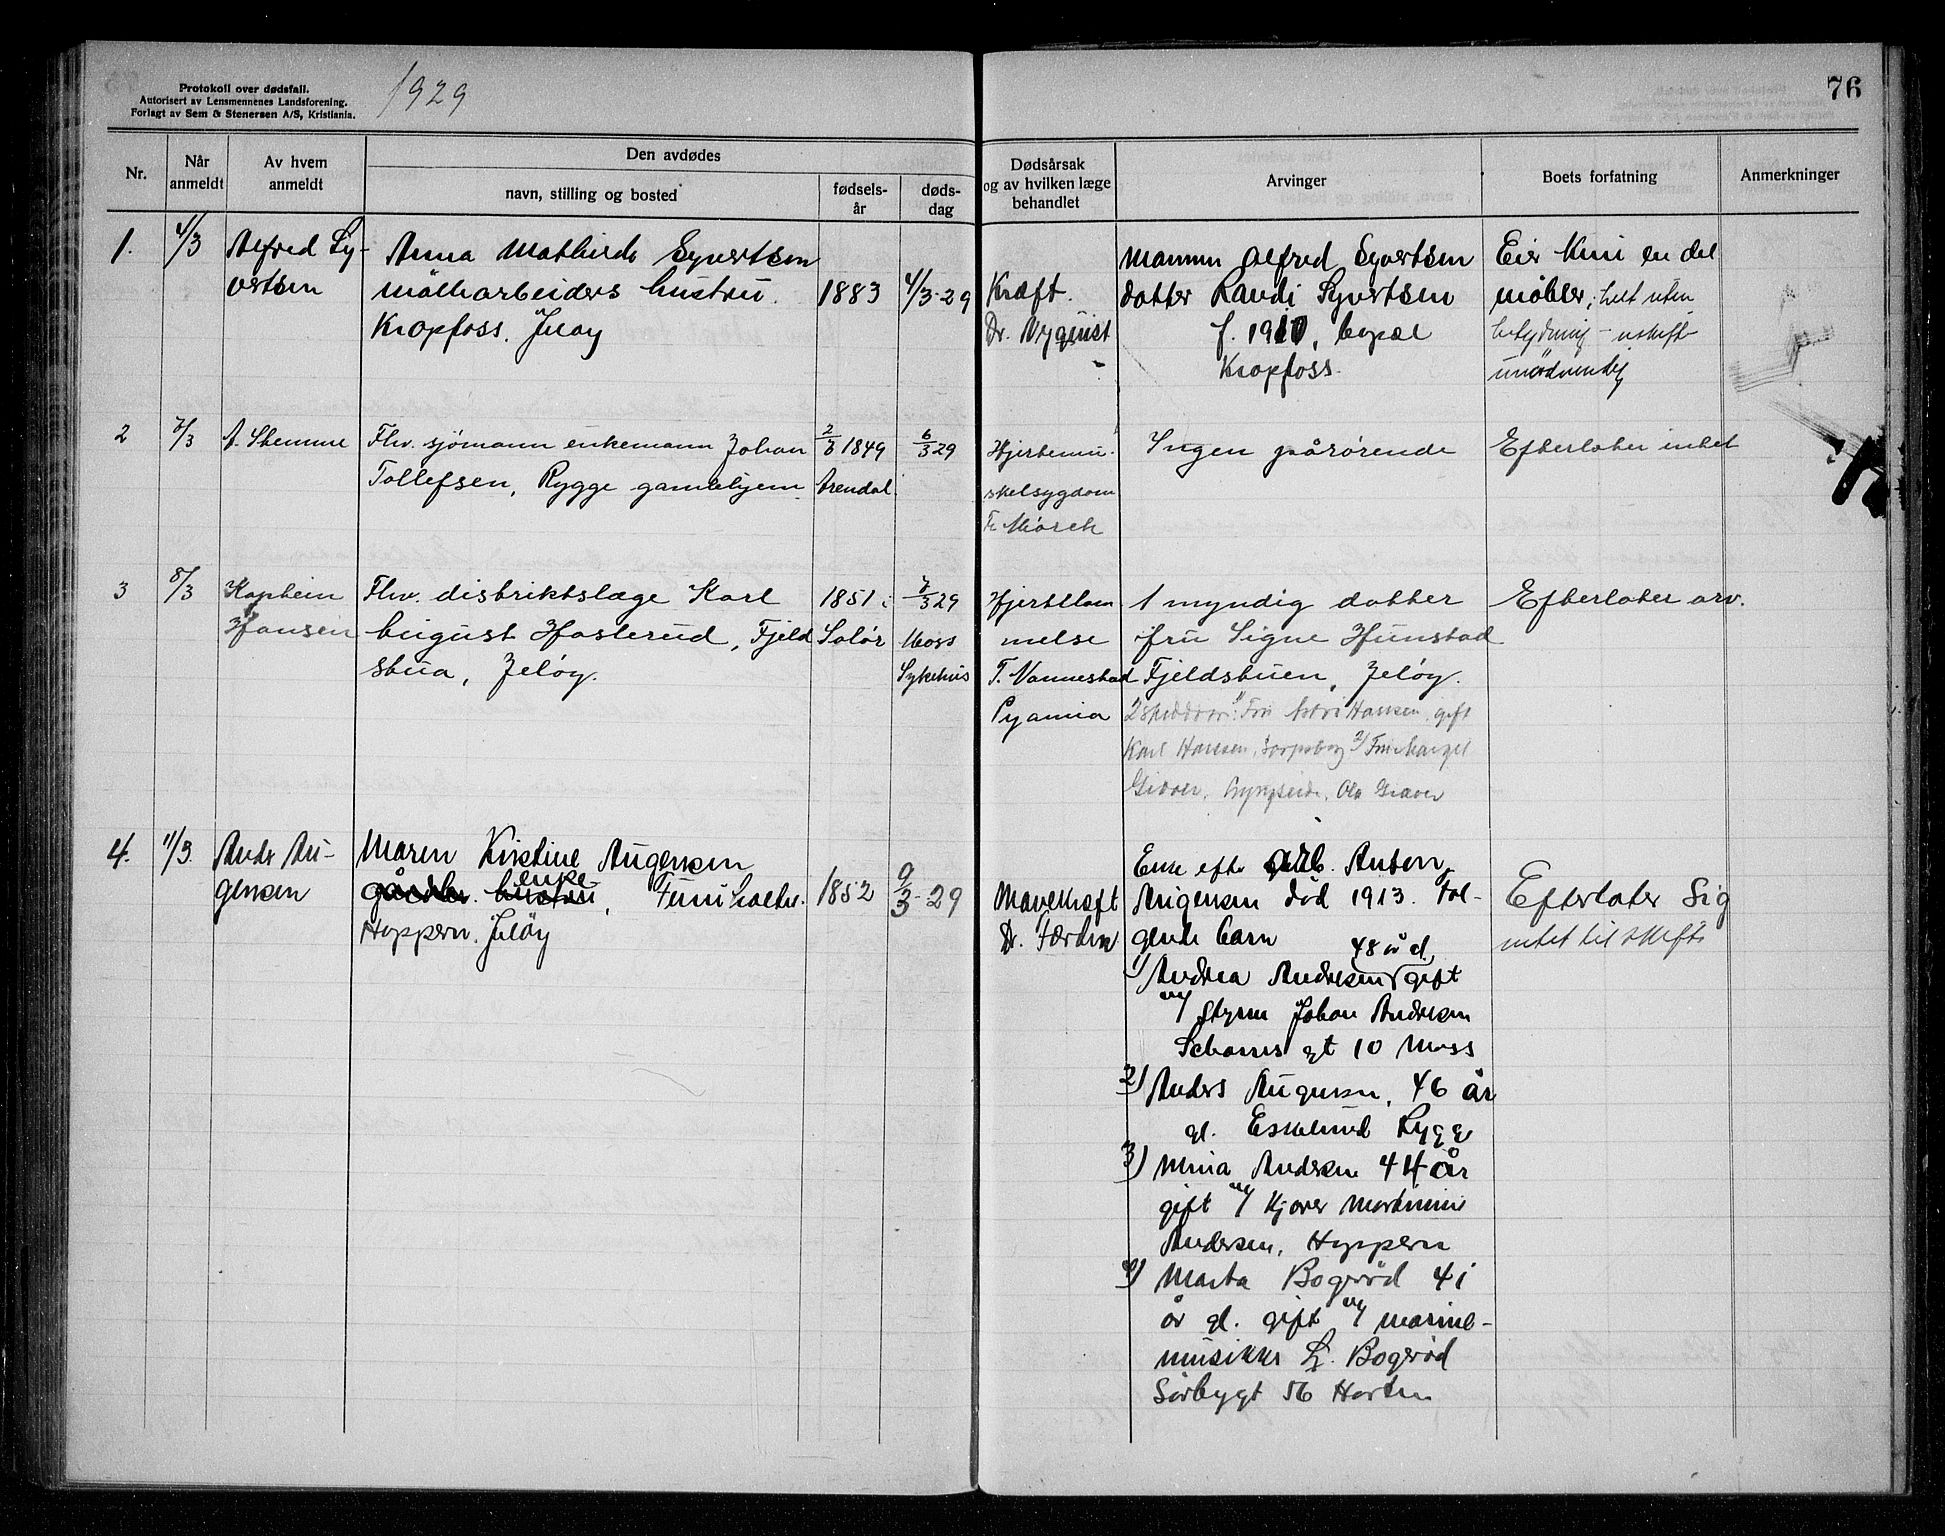 Protokoll over dødsfall.
Autorisert av Lensmennenes Landsforening.
Forlagt av Sem & Stenersen A/S, Kristiania.
1929
76
Nr.
Når anmeldt
Av hvem anmeldt
Den avdødes
navn, stilling og bosted
fødsels-år
døds-dag
Dødsårsak
og av hvilken læge
behandlet
Arvinger
Boets forfatning
Anmerkninger
1.
4/3
Alfred Sy-
vertsen
Anna Mathilde Syvertsen
hustru.
Kropfoss. Jeløy
1883
4/3-29
Kræft.
Dr. Nyquist
Mannen Alfred Syvertsen
datter Randi Syvertsen
f. 1910, bopæl
Kropfoss.
Eier kun en del
møbler, helt uten
betydning - skifte
unødvendig
2
7/3
A. Stemme
Fhv. sjømann enkemann Johan
Tollefsen, Rygge gamlehjem
1849
Arendal.
6/3 29
Hjertemu-
skelsygdom
Mørch
Ingen pårørende
Efterlater intet
3
8/3
Kaptein
Hansen
Fhv. distriktslæge Karl
August Hasterud, Fjeld
stua, Jeløy.
1851 i
Solør
7/3 29
Moss
Sykehus
Hjertelam
melse
T. Vannestad
Pyæmia
1 myndig datter
fru Signe Hunstad
Fjeldstuen, Jeløy.
Fru Astri Hansen, gift
Karl Hansen, Sarpsborg 2/ Fru Margit
Graver, Ola Graver
Efterlater arv.
4.
11/3
Andr Au-
gensen
Maren Kristine Augensen
gårdbr. hustru enke,
Hoppern. Jeløy
1852
9/3-29
Mavekræft
Dr. Førden
Enke efter Anton
Augensen død 1913. Føl-
gende barn
1/ Andrea Andresen 48 år gl. gift
m/ styrm Johan Andresen
gt 10 Moss
2/ Anders Augensen, 46 år
gl. Eskelund Rygge
3/ Mina Andersen 44 år
gift m/ Kjører Martinius
Andersen, Hoppern
4/ Marta Bogerød 41
år gl. gift m/ marine-
musikker Bogerød
Sørbygt 56 Horten
Efterlater sig
intet til skifte